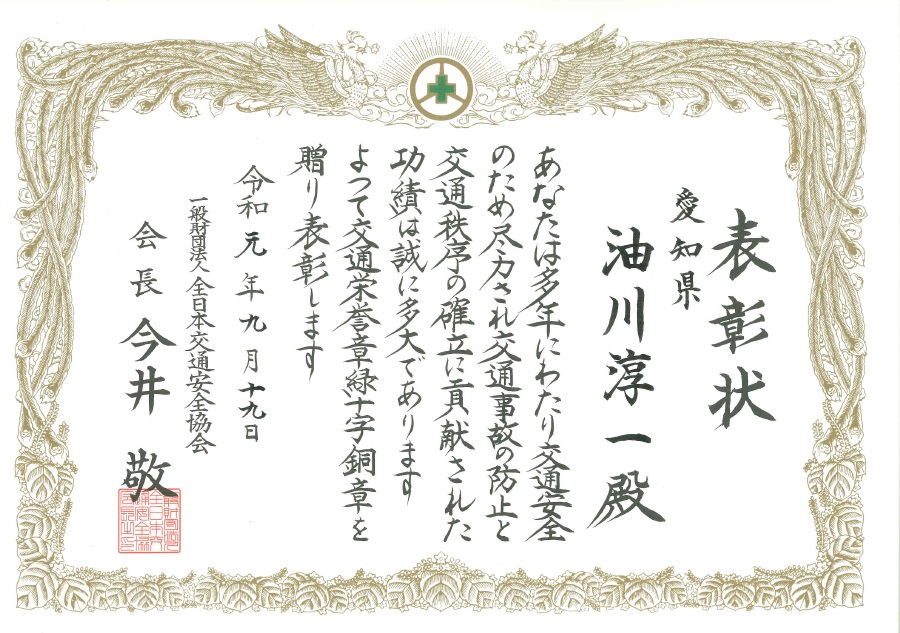 表彰状
愛知県
油川淳一殿
あなたは多年にわたり交通安全
のため尽力され交通事故の防止と
交通秩序の確立に貢献された
功績は誠に多大であります
よって交通栄誉章緑十字銅章を
贈り表彰します
令和元年九月十九日
一般財団法人全日本交通安全協会
会長今井敬